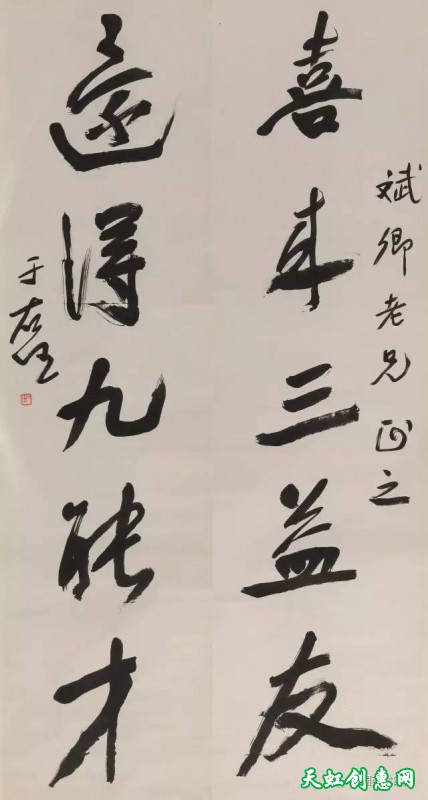 斌卿老兄正之
喜來三益友
還得九能才
于右任
天虹创惠网